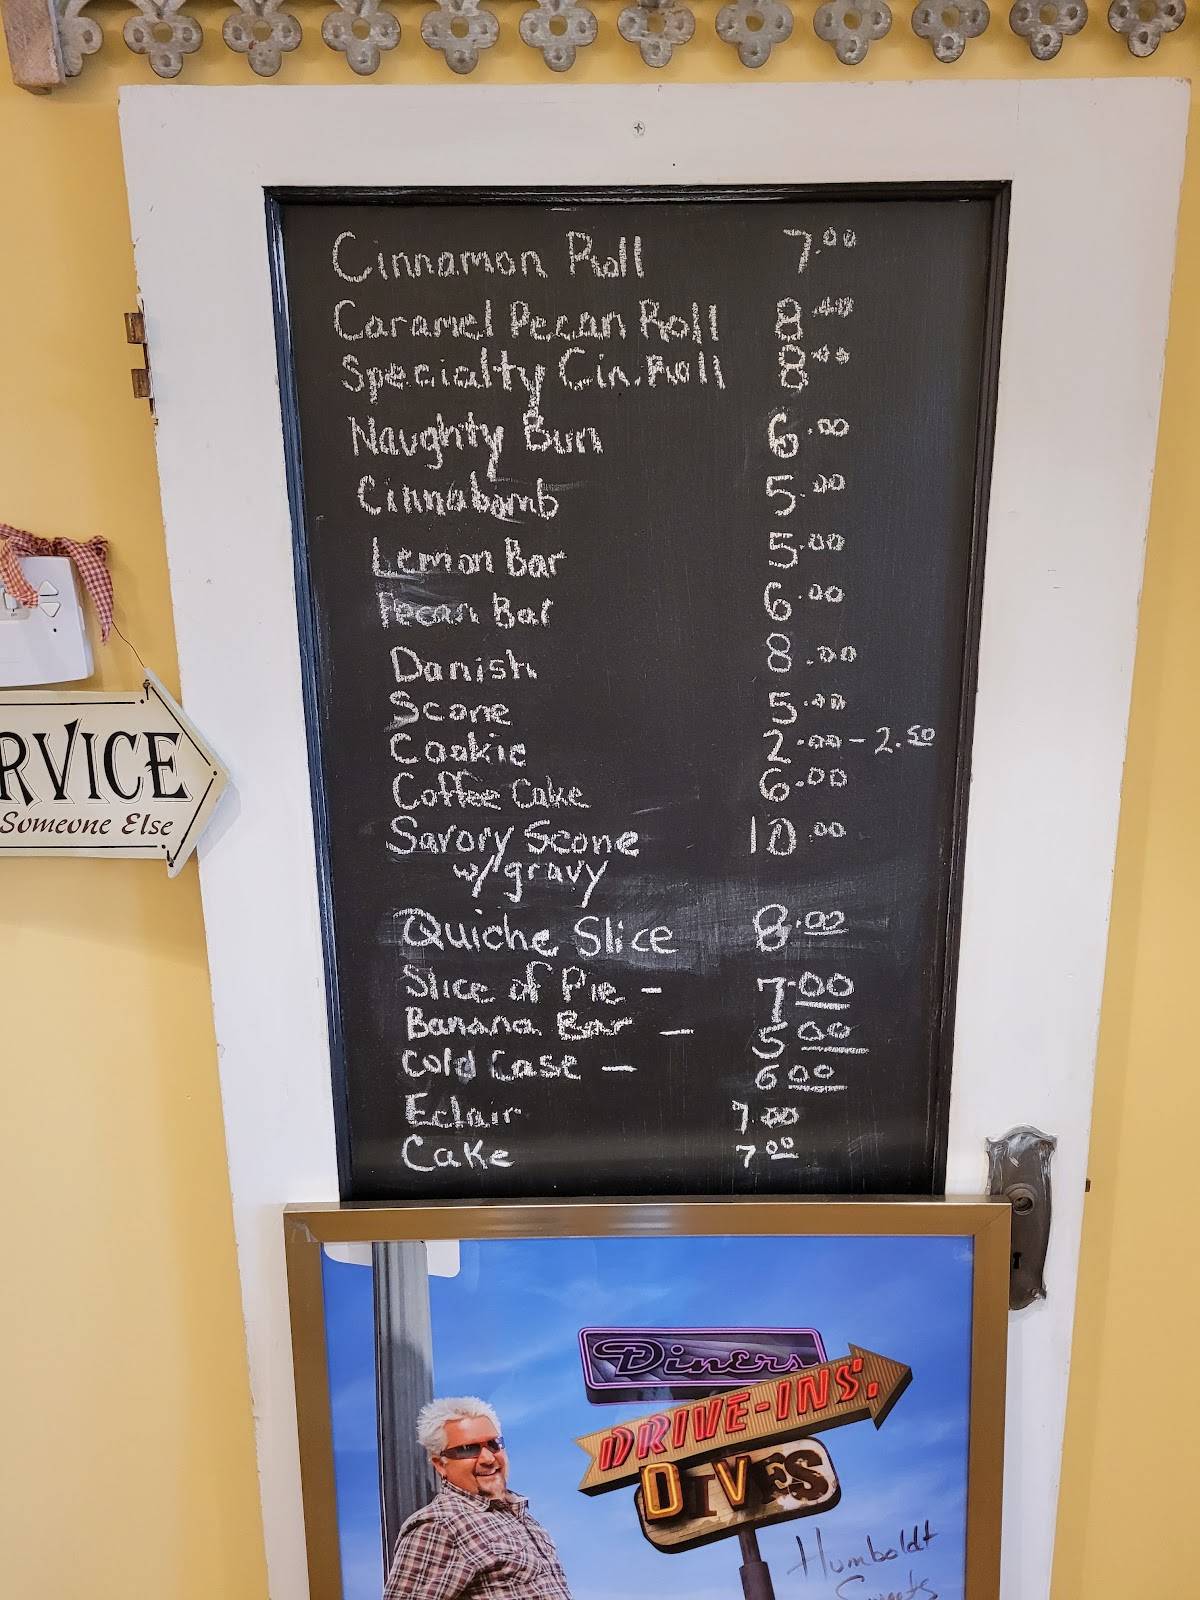 Cinnamon Roll 7.00
Caramel Pecan Roll 8.00
Specialty Cin. Roll 8.00
Naughty Bun 6.00
Cinnabomb 5.00
Lemon Bar 5.00
Pecan Bar 6.00
Danish 8.00
Scone 5.00
Cookie 2.00 - 2.50
Coffee Cake 6.00
Savory Scone 10.00
w/ gravy
Quiche Slice 8.00
Slice of Pie - 7.00
Banana Bar - 5.00
Cold Case - 6.00
Eclair 7.00
Cake 7.00
RVICE
Someone Else
Diners
DRIVE-INS,
DIVES
Humboldt
Sweets